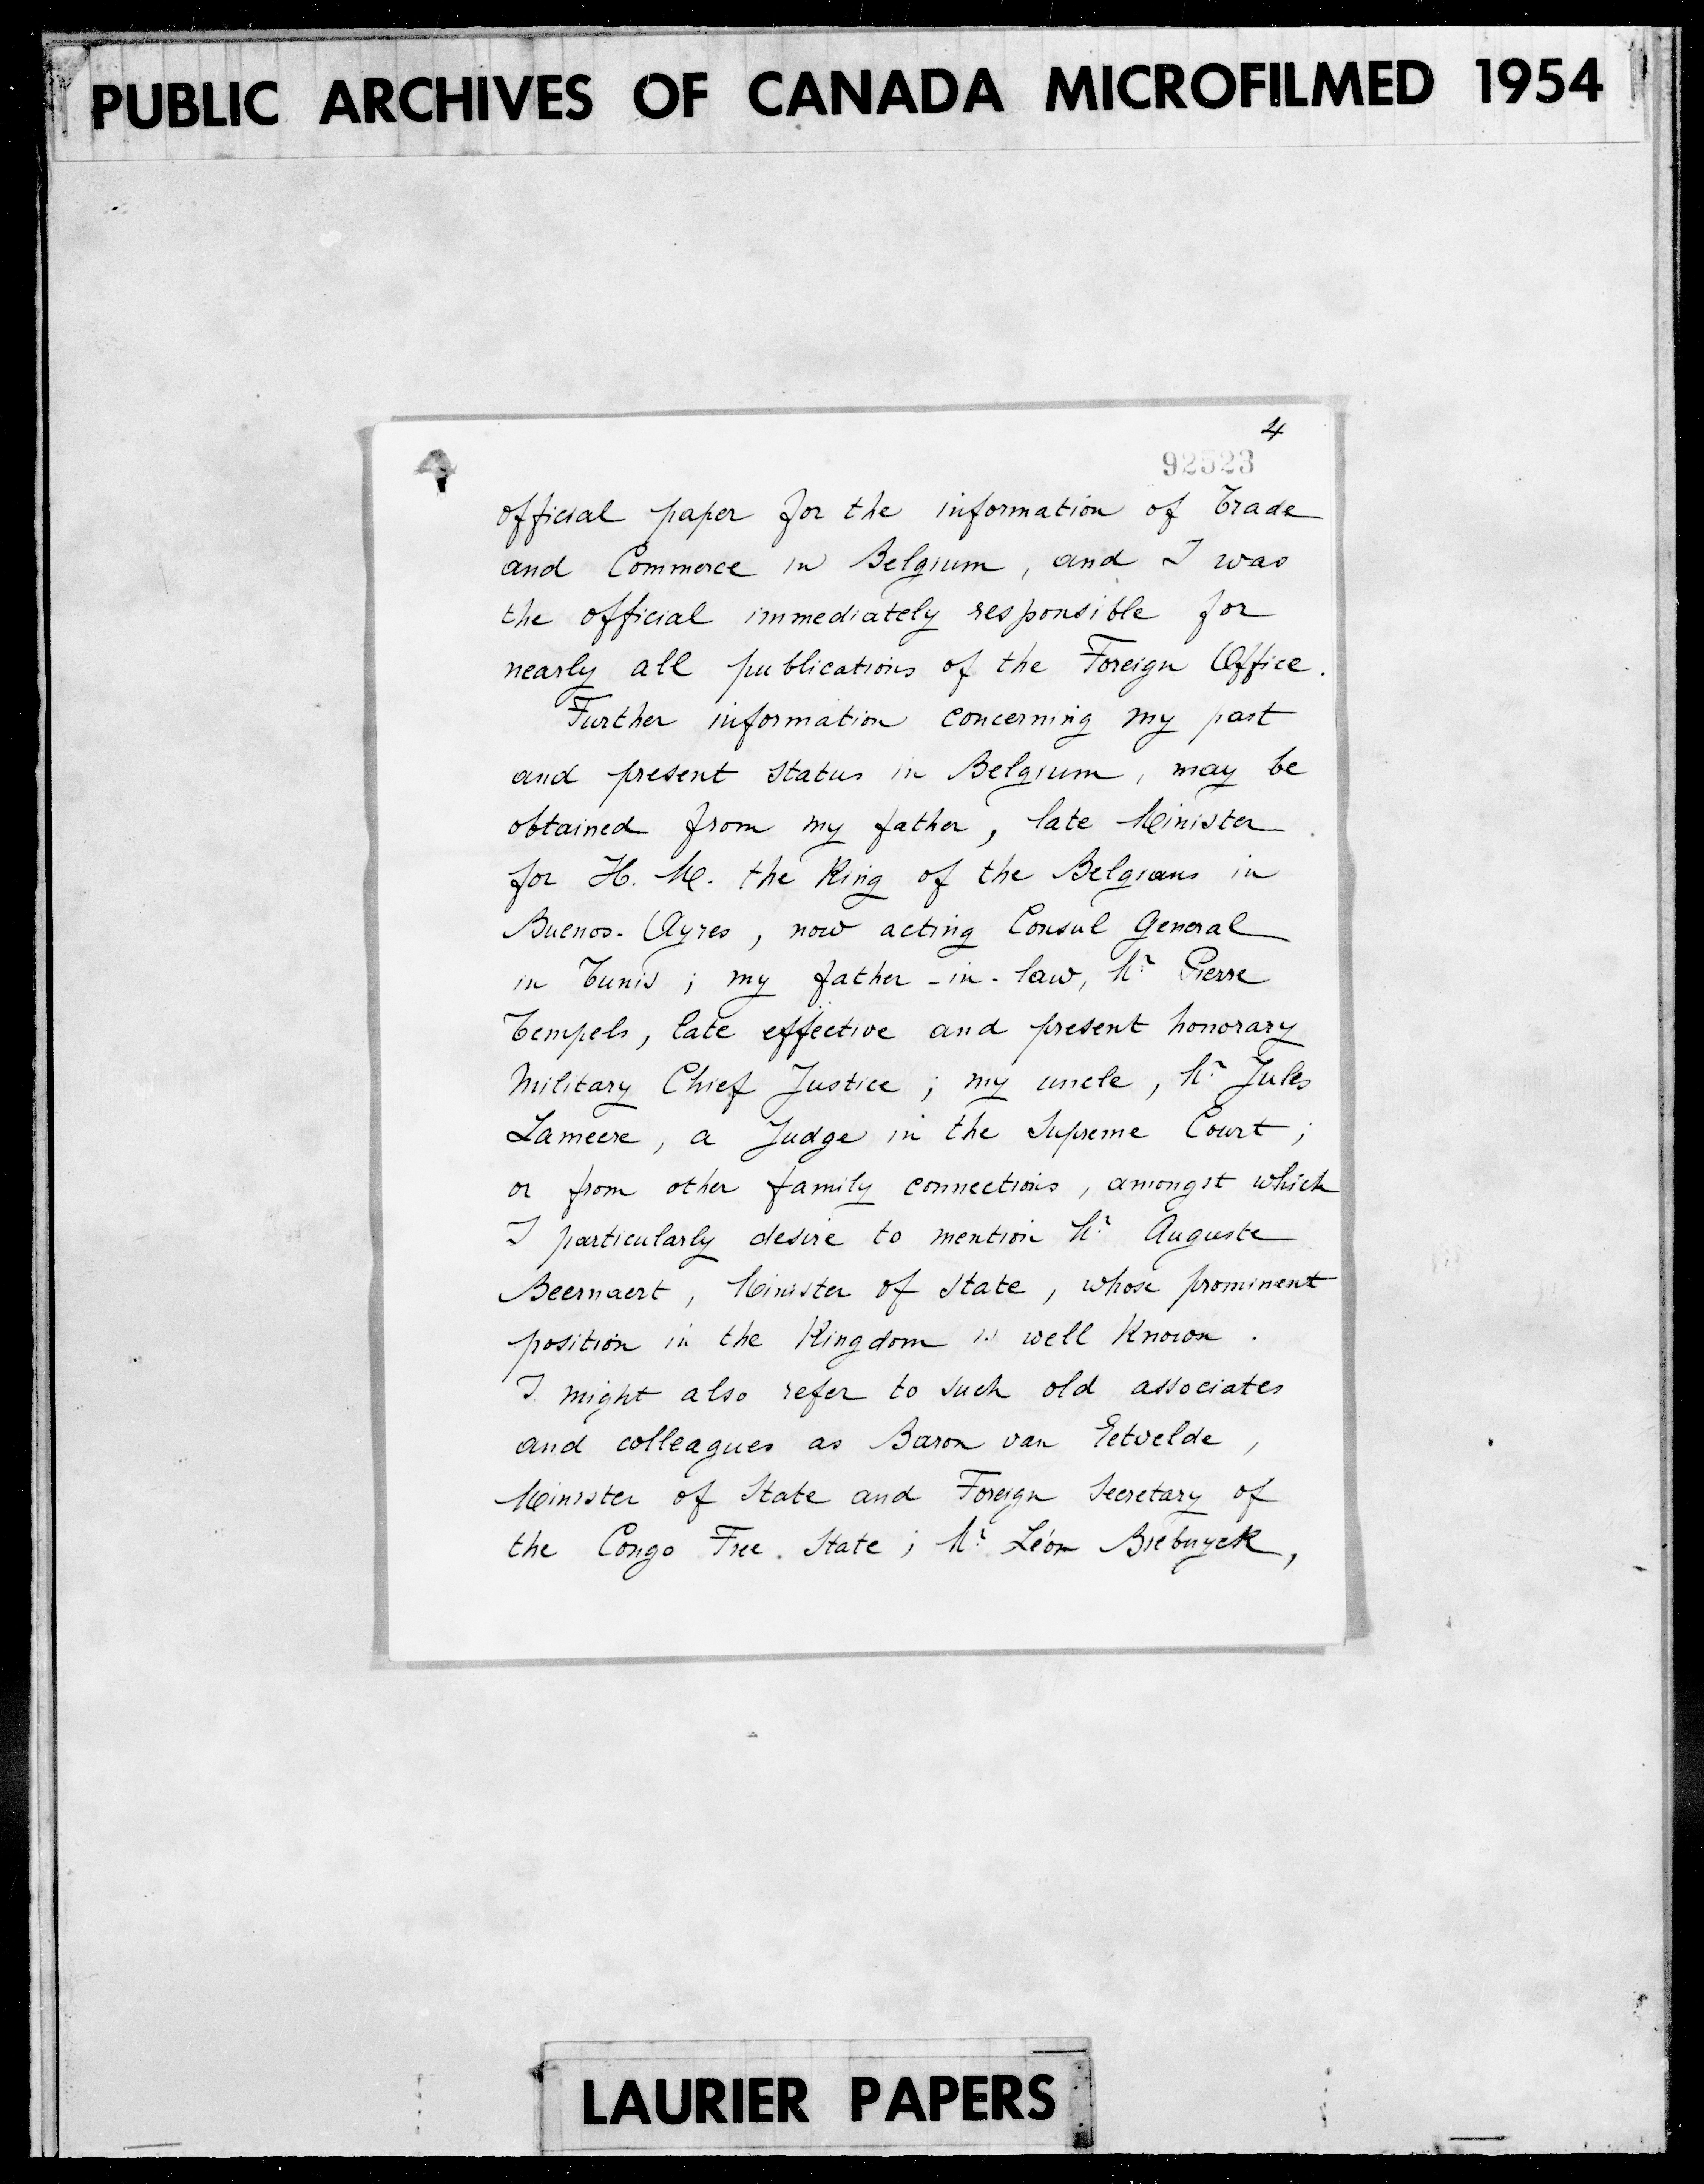 PUBLIC ARCHIVES OF CANADA MICROFILMED 1954
4
92523
official paper for the information of Trade
and Commerce in Belgium, and I was
the official immediately responsible for
nearly all publications of the Foreign Office.
Further information concerning my past
and present status in Belgium, may be
obtained from my father, late Minister
for H. M. the King of the Belgians in
Buenos-Ayres, now acting Consul General
in Tunis; my father-in-law, Mr Pierre
Tempels, late effective and present honorary
Military Chief Justice; my uncle, Mr Jules
Lameere, a Judge in the Supreme Court;
or from other family connections, amongst which
I particularly desire to mention Mr Auguste
Beernaert, Minister of State, whose prominent
position in the Kingdom is well known.
I might also refer to such old associates
and colleagues as Baron van Eetvelde,
Minister of State and Foreign Secretary of
the Congo Free State; Mr Léon Biebuyck,
LAURIER PAPERS